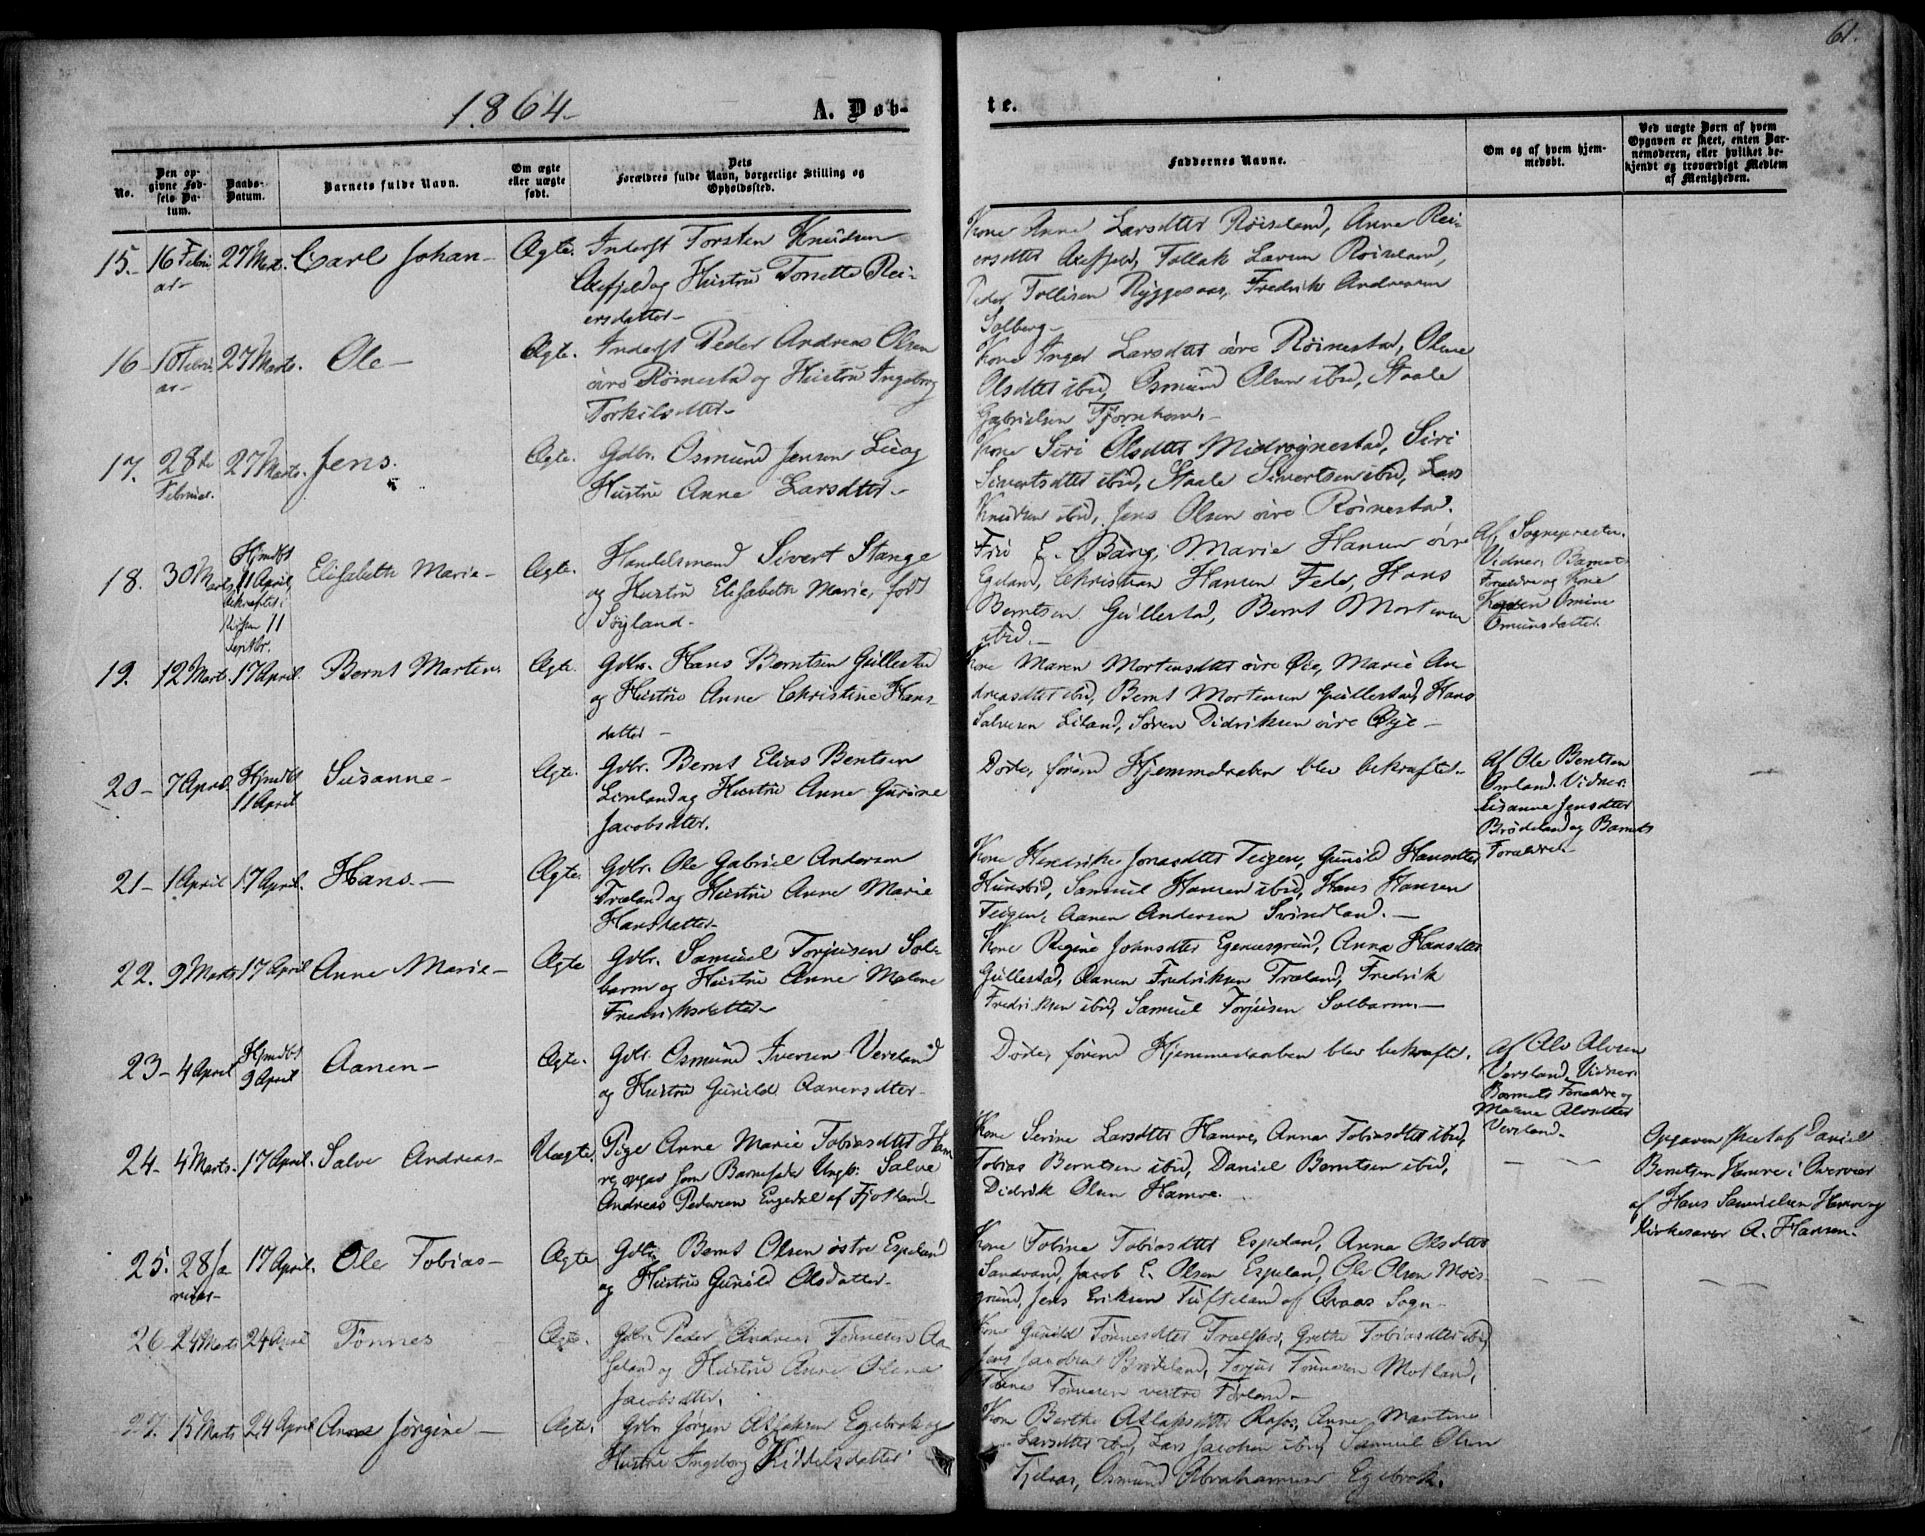 61.
1864-
A. Døb-
te.
No.
Den op-
givne Fød-
sels Da-
tum.
Daabs-
Datum.
Barnets fulde Navn.
Om ægte
eller uægte
født.
Dets
Forældres fulde Navn, borgerlige Stilling og
Opholdssted.
Faddernes Navne.
Om og af hvem hjem-
medøbt.
Ved uægte Børn af hvem
Opgaven er skeet, enten Bar-
nemoderen, eller hvilket be-
kjendt og troværdigt Medlem
af Menigheden.
15.- 16 Febru
ar-
27 Mart. Carl Johan- Ægte. Inderst Torsten Knudsen
og Hustru Tonette Rei-
ersdatter-
Kone Anne Larsdtter Røiseland, Anne Rei-
ersdtter Tollak Røiseland,
Peder Tollisen Ryggesaas, Fredrik Andreasen
Solberg-
16- 10 Febru
ar-
27 Marts. Ole- Ægte. Inderst Peder Andreas Olsen
øvre Røinestad og Hustru Ingeborg
Torkilsdtter-
Kone Inger Larsdtter øvre Røinestad, Olene
Olsdtter ibid, Osmund Olsen ibid, Staale
Gabrielsen Tjørnhom.-
17. 28de
Februar.
27 Marts. Jens. Ægte. Gdbr. Osmund Jensen Lie og
Hustru Anne Larsdtter-
Kone Siri Olsdtter Midrøynestad, Siri
Sivertsdtter ibid, Staale Sivertsen ibid, Lars
Knudsen ibid, Jens Olsen øvre Røinestad.
18. 30 Marts
Hjmdbt
11 April,
bekræftet i
Kirken 11
Septbr.
Elisabeth Marie- Ægte. Handelsmand Sivert Stange
og Hustru Elisabeth Marie, født
Søyland-
Fru E. Bang, Marie Hansen øvre
Egeland, Christian Hansen Feda, Hans
Berntsen Gullestad, Bernt Mortensen
ibid.-
Af Sognepresten.
Vidner, Barnets
Forældre og Kone
Omine
Omundsdatter.
19. 12 Mart. 17 April. Bernt Marten. Ægte. Gdbr. Hans Berntsen Gullestad
og Hustru Anne Christine Hans-
datter-
Kone Maren Mortensdtter øvre Øie, Marie An-
dreasdtter ibid, Bernt Mortensen Gullestad, Hans
Salvesen Liland, Søren Didriksen øvre Øye-
20- 7 April. Hjmdbt
11 April
Susanne- Ægte. Gdbr. Bernt Elias Bentsen
Omland og Hustru Anne Gurine
Jacobsdtter.
Døde, førend Hjemmedaaben blev bekræftet.-
Af Ole Bentsen
Omland. Vidner:
Susanne Jensdtter
Brødeland og Barnets
Forældre-
21- 1 April 17 April. Hans.- Ægte. Gdbr. Ole Gabriel Andersen
Træland og Hustru Anne Marie
Hansdatter-
Kone Hendrike Jonasdtter Teigen, Gunild Hansdtter
Hunsbid, Samuel Hansen ibid, Hans Hansen
Teigen, Aanen Andersen Svindland.-
22. 9 Marts 17 April Anne Marie- Ægte Gdbr. Samuel Torjusen Sol-
barm og Hustru Anne Malene
Fredriksdatter-
Kone Regine Johnsdtter Egenesgrund, Anna Hansdtter
Gullestad, Aanen Fredriksen Træland, Fredrik
Fredriksen ibid, Samuel Torjusen Solbarm.-
23- 4 April Hjmdbt
9 April
Aanen- Ægte. Gdbr. Osmund Iversen Versland
og Hustru Gunild Aanensdtter-
Døde, førend Hjemmedaaben blev bekræftet.
Af Ole Olsen
Versland, Vidner:
Barnets Forældre og
Malene Olsdtter
Versland-
24- 4 Marts. 17 April. Salve Andreas- Uægte. Pige Anne Marie Tobiasdtter Ham
re, opgav som Barnefader Ungk. Salve
Andreas Pedersen Engedal af Fjotland-
Kone Serine Larsdtter Hamre, Anna Tobiasdtter ibid,
Tobias Berntsen ibid, Daniel Berntsen ibid,
Didrik Olsen Hamre.
Opgaven skeet af Daniel
Berntsen Hamre i Overvær
af Hans Samuelsen Hamre og
Kirkesanger A. Hansen.
25. 28 Ja
nuar-
17 April. Ole Tobias- Ægte Gdbr. Bernt Olsen østre Espeland
og Hustru Gunild Olsdatter-
Kone Tobine Tobiasdtter Espeland, Anna Olsdtter
Sandvand, Jacob E. Olsen Espeland, Ole Olsen Mois-
grund, Jens Eriksen Tufteland af Qvaas Sogn-
26- 24 Marts 24 April Tønnes Ægte. Gdbr. Peder Andreas Tønnesen Aa-
seland og Hustru Anne Olena
Jacobsdtter.
Kone Gunild Tønnesdtter Grethe Tobiasdtter ibid,
Jens Jacobsen Brødeland, Torjus Tønnesen Motland,
Tønnes Tønnesen vestre Førland-
27. 15 Marts 24 April Anna Jørgine- Ægte. Gdbr. Jørgen Atlaksen Egebrok og
Hustru Ingeborg Kiddelsdatter
Kone Berthe Atlaksdtter Anne Martine
Larsdtter ibid, Lars Jacobsen ibid, Samuel Olsen
Fjelsaas, Osmund Abrahamsen Egebrok.